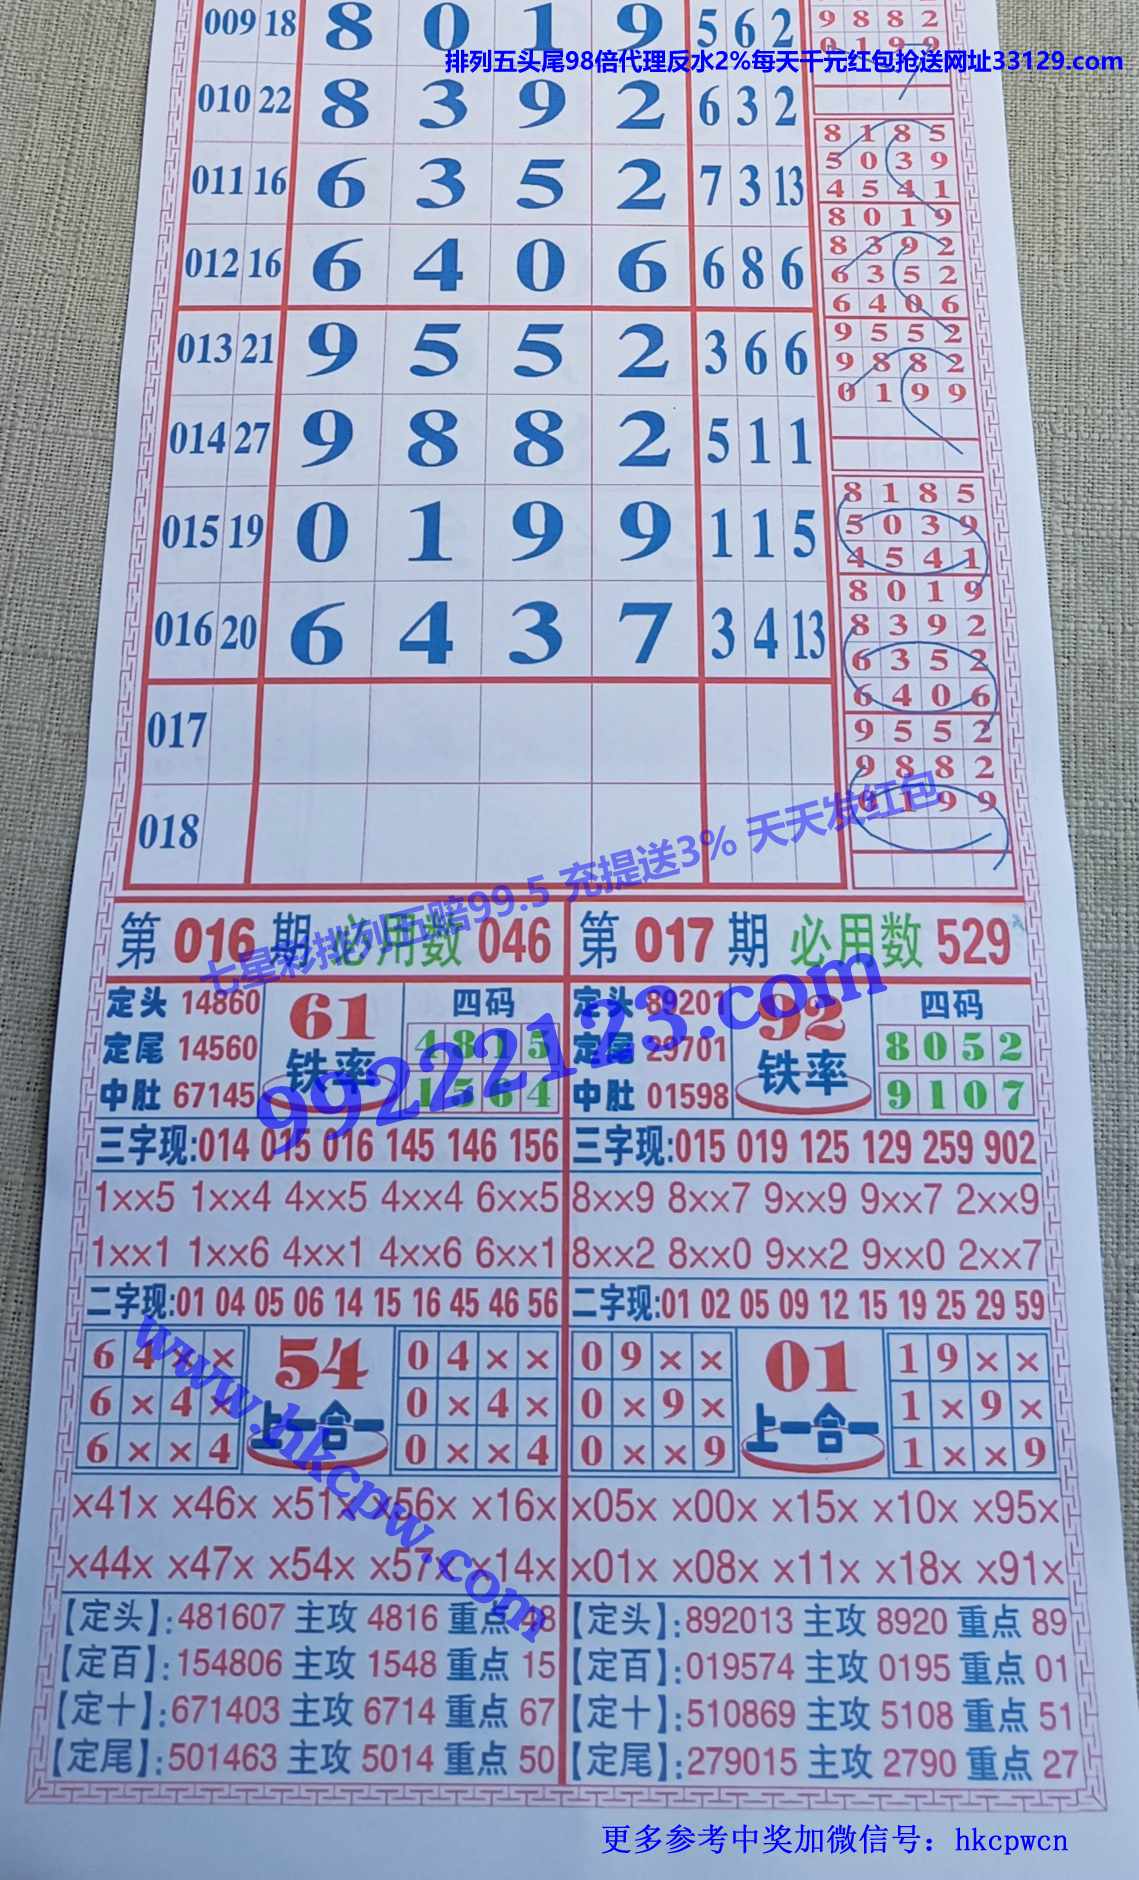 009 18 8 0 1 9 5 6 2
9 8 8 2
0 1 9 9
排列五头尾98倍代理反水2%每天千元红包抢送网址33129.com
010 22 8 3 9 2 6 3 2
011 16 6 3 5 2 7 3 13
012 16 6 4 0 6 6 8 6
013 21 9 5 5 2 3 6 6
014 27 9 8 8 2 5 1 1
015 19 0 1 9 9 1 1 5
016 20 6 4 3 7 3 4 13
017
018
8 1 8 5
5 0 3 9
4 5 4 1
8 0 1 9
8 3 9 2
6 3 5 2
6 4 0 6
9 5 5 2
9 8 8 2
0 1 9 9
8 1 8 5
5 0 3 9
4 5 4 1
8 0 1 9
8 3 9 2
6 3 5 2
6 4 0 6
9 5 5 2
9 8 8 2
0 1 9 9
七星彩排列五赔99.5 充提送3% 天天发红包
第 016 期 必用数 046
定头 14860
定尾 14560
中肚 67145
61
铁率
四码
4 8 1 5
1 5 6 4
三字现:014 015 016 145 146 156
1××5 1××4 4××5 4××4 6××5
1××1 1××6 4××1 4××6 6××1
二字现:01 04 05 06 14 15 16 45 46 56
6 4 × ×
6 × 4 ×
6 × × 4
54
上一合一
0 4 × ×
0 × 4 ×
0 × × 4
×41× ×46× ×51× ×56× ×16×
×44× ×47× ×54× ×57× ×14×
【定头】:481607 主攻 4816 重点 48
【定百】:154806 主攻 1548 重点 15
【定十】:671403 主攻 6714 重点 67
【定尾】:501463 主攻 5014 重点 50
第 017 期 必用数 529
定头 89201
定尾 29701
中肚 01598
92
铁率
四码
8 0 5 2
9 1 0 7
三字现:015 019 125 129 259 902
8××9 8××7 9××9 9××7 2××9
8××2 8××0 9××2 9××0 2××7
二字现:01 02 05 09 12 15 19 25 29 59
0 9 × ×
0 × 9 ×
0 × × 9
01
上一合一
1 9 × ×
1 × 9 ×
1 × × 9
×05× ×00× ×15× ×10× ×95×
×01× ×08× ×11× ×18× ×91×
【定头】:892013 主攻 8920 重点 89
【定百】:019574 主攻 0195 重点 01
【定十】:510869 主攻 5108 重点 51
【定尾】:279015 主攻 2790 重点 27
99222123.com
www.hkcpw.com
更多参考中奖加微信号：hkcpwcn